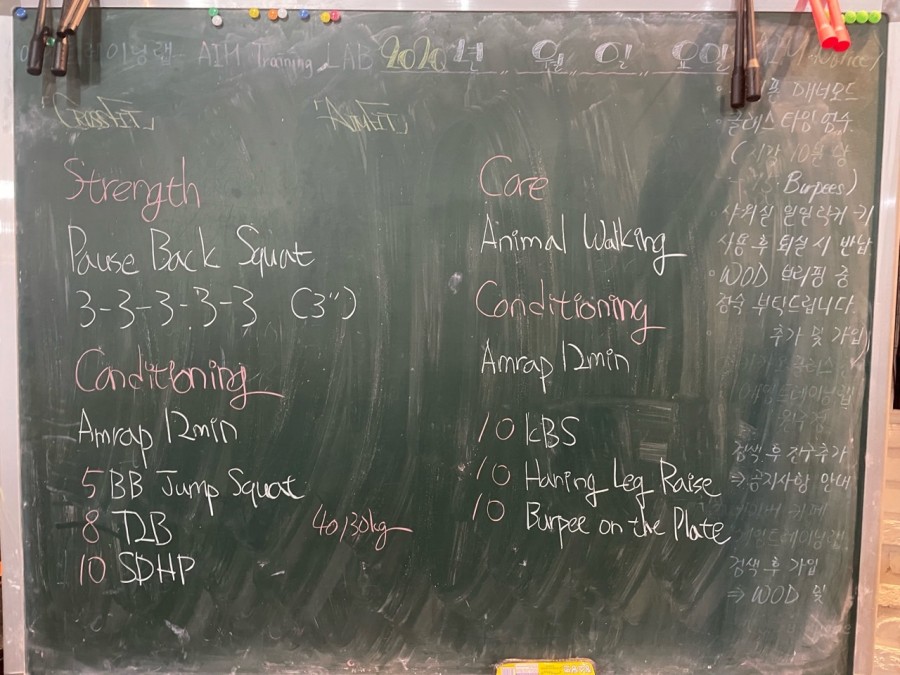 AIM Training LAB 2020년 월 일 요일
CROSSFIT
AIMFIT
Strength
Pause Back Squat
3-3-3-3-3 (3")
Conditioning
Amrap 12min
5 BB Jump Squat
8 TZB 40/30kg
10 SDHP
Core
Animal Walking
Conditioning
Amrap 12min
10 KBS
10 Haning Leg Raise
10 Burpee on the Plate
폰 매너모드
클래스 타임 엄수
Burpees)
사용 후 퇴실 시 반납
WOD 브리핑 중
정숙 부탁드립니다.
추가 및 가입)
검색 후 친구추가
⇒ 공지사항 안내
검색 후 가입
⇒ WOD 및